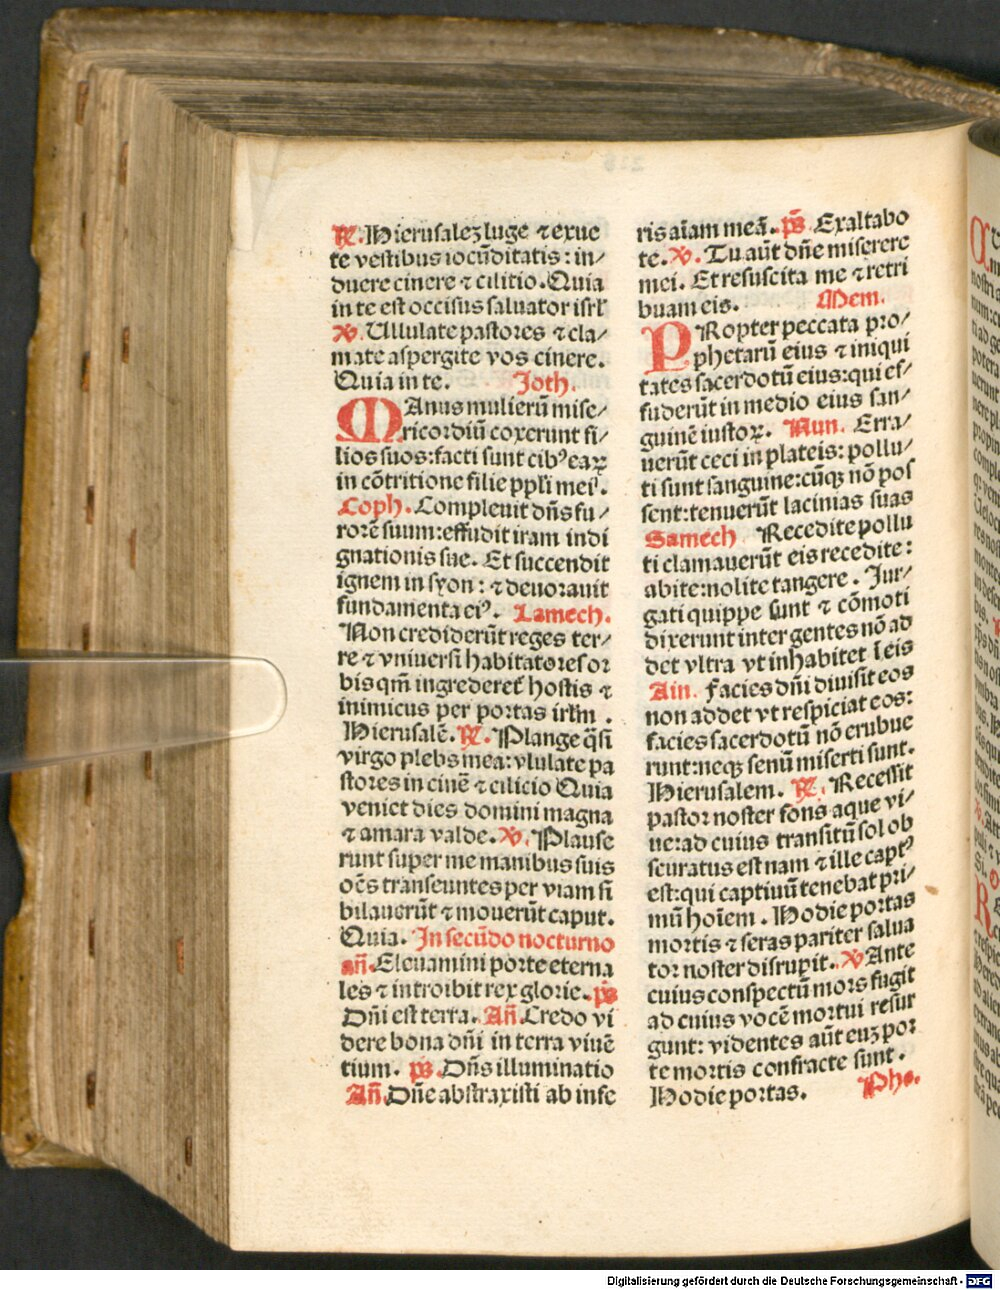 ℟. Hierusalez luge ⁊ exue
te vestibus iocūditatis: in⸗
duere cinere ⁊ cilitio. Quia
in te est occisus saluator isrl̄
℣. Ullulate pastores ⁊ cla⸗
mate aspergite vos cinere.
Quia in te. Joth.
MAnus mulierū mise⸗
ricordiū coxerunt fi⸗
lios suos: facti sunt cibꝰ eaꝝ
in cōtritione filie ppl̄i mei.
Coph. Compleuit dn̄s fu⸗
rorē suum: effudit iram indi
gnationis sue. Et succendit
ignem in syon: ⁊ deuorauit
fundamenta eiꝰ. Lamech.
Non crediderūt reges ter⸗
re ⁊ vniuersi habitatores or
bis qm̄ ingrederet᷑ hostis ⁊
inimicus per portas irl̄m.
Hierusalē. ℟. Plange q̄si
virgo plebs mea: vlulate pa
stores in cinē ⁊ cilicio Quia
veniet dies domini magna
⁊ amara valde. ℣. Plause
runt super me manibus suis
oēs transeuntes per viam si
bilauerūt ⁊ mouerūt caput.
Quia. In secūdo nocturno
an̄. Eleuamini porte eterna
les ⁊ introibit rex glorie. ps̄
Dn̄i est terra. An̄. Credo vi
dere bona dn̄i in terra viuē
tium. ps̄. Dn̄s illuminatio
An̄. Dn̄e abstraxisti ab infe
ris aīam meā. ps̄. Exaltabo
te. ℣. Tu aūt dn̄e miserere
mei. Et resuscita me ⁊ retri
buam eis. Mem.
PRopter peccata pro⸗
phetarū eius ⁊ iniqui
tates sacerdotū eius: qui ef⸗
fuderūt in medio eius san⸗
guinē iustoꝝ. Nun. Erra⸗
uerūt ceci in plateis: pollu⸗
ti sunt sanguine: cūqꝫ nō pos
sent: tenuerūt lacinias suas
Samech Recedite pollu
ti clamauerūt eis recedite:
abite: nolite tangere. Jur⸗
gati quippe sunt ⁊ cōmoti
dixerunt inter gentes nō ad
det vltra vt inhabitet ī eis
Ain. facies dn̄i diuisit eos
non addet vt respiciat eos:
facies sacerdotū nō erubue
runt: neqꝫ senū miserti sunt.
Hierusalem. ℟. Recessit
pastor noster fons aque vi⸗
ue: ad cuius transitū sol ob
scuratus est nam ⁊ ille captꝰ
est: qui captiuū tenebat pri⸗
mū hoīem. Hodie portas
mortis ⁊ seras pariter salua
tor noster disrupit. ℣ Ante
cuius conspectū mors fugit
ad cuius vocē mortui resur
gunt: videntes aūt euꝫ por
te mortis confracte sunt.
Hodie portas. Phe.
Digitalisierung gefördert durch die Deutsche Forschungsgemeinschaft - DFG